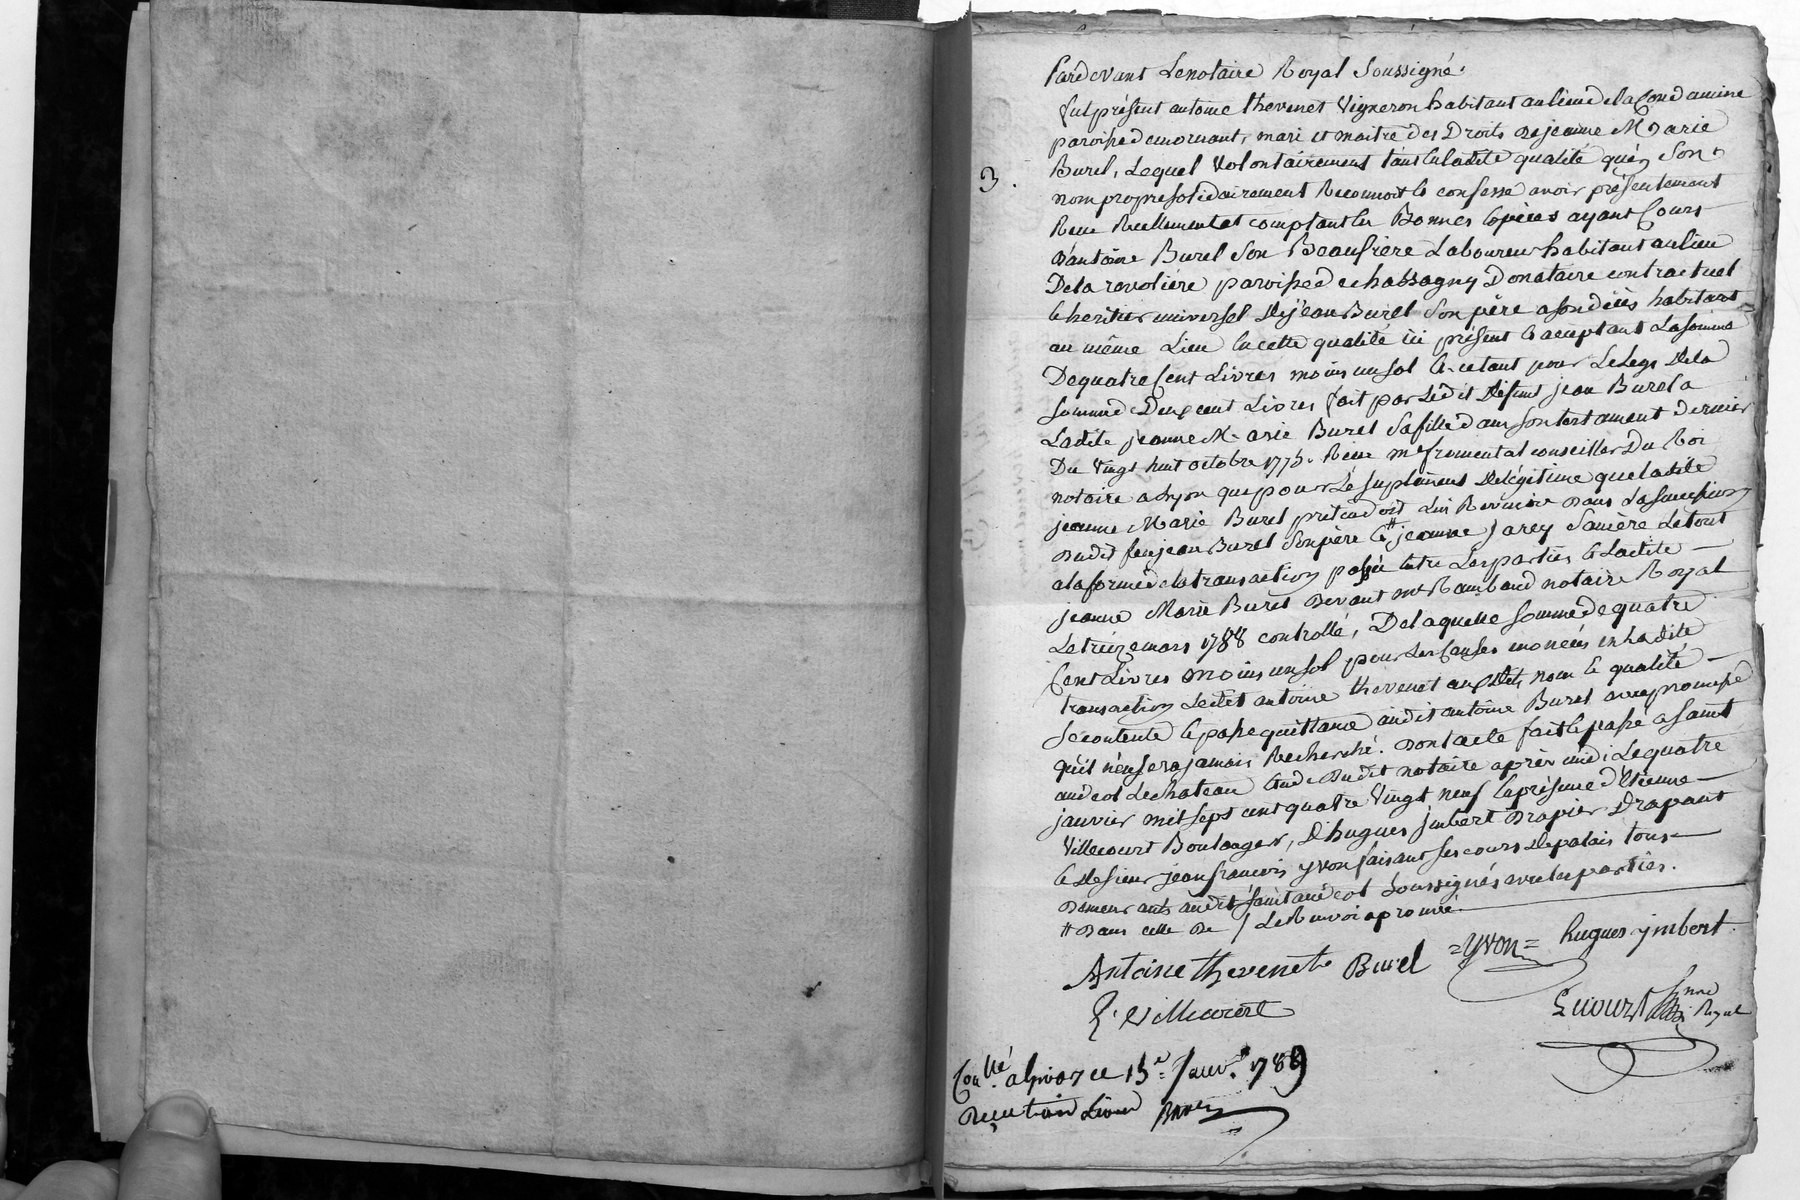 Pardevant Lenotaire Royal Soussigné.
fut présent antoine thevenet Vigneron habitant aulieu delaCondamine
paroisse demornant, mari et maitre des Droits de jeanne Marie
Burel, Lequel Volontairement tant Enladite qualité qu'en Son
3.
nom propre solidairement Reconnoit & confesse avoir présentement
Reçu Reellement et comptant En Bonnes Espèces ayant Cours
d'antoine Burel Son Beaufrere Laboureur habitant aulieu
Dela ravolière paroisse dechassagny Donataire contractuel
& heritier universel de jean Burel Son père a son décès habitant
au même Lieu En cette qualité ici présent & acceptant La somme
De quatre Cent Livres moins un sol & cetant pour Le Legs Dela
somme de Deux cent Livres fait par Ledit défunt jean Burel a
Ladite jeanne Marie Burel Sa fille dans son testament dernier
Du Vingt huit octobre 1775. Reçu me fromental conseiller Du Roi
notaire a Lyon que pour Le suplément De légitime que ladite
jeanne Marie Burel prétendoit Lui Revenir dans La succession
dudit feu jean Burel Son père & # jeanne jarey Sa mère Le tout
a la forme de la transaction passée Entre Les parties & Ladite
jeanne Marie Burel devant me Rambaud notaire Royal
Le treize mars 1788 controllé, De laquelle somme de quatre
Cent Livres moins un sol pour Les Causes énoncées En Ladite
transaction Ledit antoine thevenet auxdits nom & qualité
Se contente & passe quittance audit antoine Burel avec promesse
qu'il n'en sera jamais Recherché. dont acte fait & passé a Saint
andeol Le chateau Etude dudit notaire après midi Le quatre
janvier mil sept cent quatre Vingt neuf En présence d'Etienne
Villecourt Boulanger, d'hugues jmbert drapier Drapant
& de sieur jean francois yvon faisant ses cours de palais tous
demeurants audit Saint andéol Soussignés avec les parties.
# dans celle de / Le Renvoi aprouvé
Antoine thevenet Burel =yvon= hugues ymbert
E. Villecourt
Royal
Conllé a Givors ce 15e Janvr 1789
Reçu trois Livres